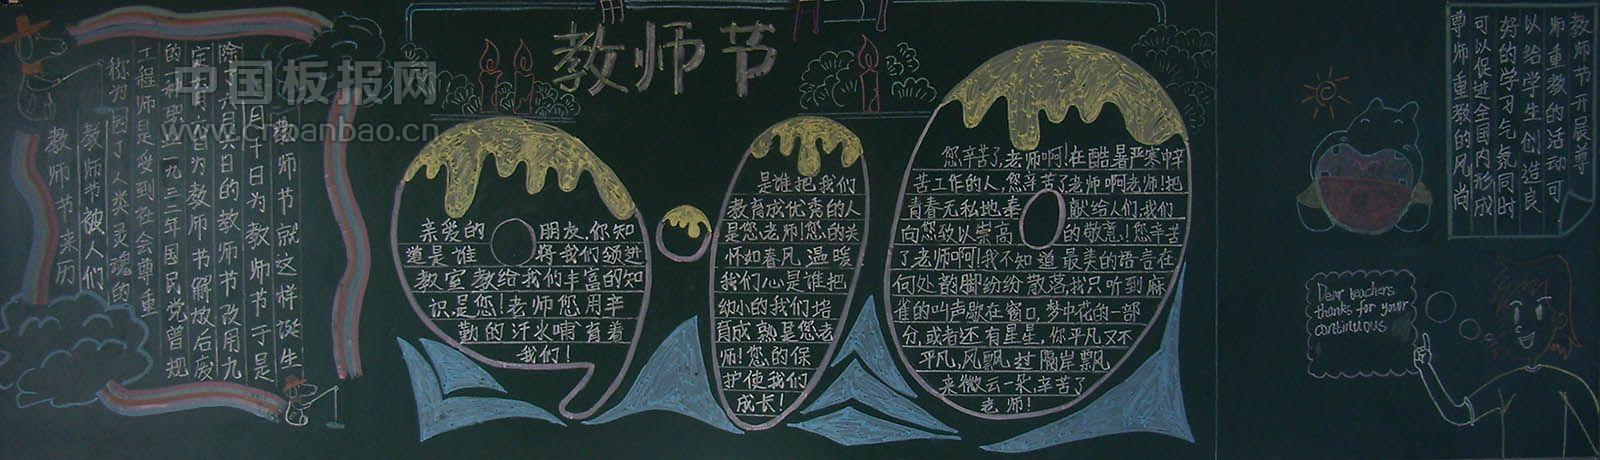 教师节
教师节来历
教师节被人们
称为园丁人类灵魂的
工程师是受到社会尊重
的一种职业一九三二年国民党曾规
定六月六日为教师节解放后废
除了六月六日的教师节改用九
月十日为教师节于是
教师节就这样诞生
亲爱的朋友,你知
道是谁将我们领进
教室教给我们丰富的知
识是您!老师您用辛
勤的汗水哺育着
我们!
是谁把我们
教育成优秀的人
是您,老师!您的关
怀如春风温暖
我们心是谁把
幼小的我们培
育成熟是您老
师!您的保
护使我们
成长!
您辛苦了,老师啊!在酷暑严寒中辛
苦工作的人,您辛苦了老师啊老师!把
青春无私地奉献给人们,我们
向您致以崇高的敬意!您辛苦
了老师啊!我不知道最美的语言在
何处韵脚纷纷散落,我只听到麻
雀的叫声歇在窗口,梦中花的一部
分,或者还有星星,你平凡又不
平凡,风飘过隔岸飘
来微云一朵,辛苦了
老师!
教师节开展尊
师重教的活动可
以给学生创造良
好的学习气氛同时
可以促进全国内形成
尊师重教的风尚
Dear teachers
thanks for your
continuous
中国板报网
www.cnbanbao.cn